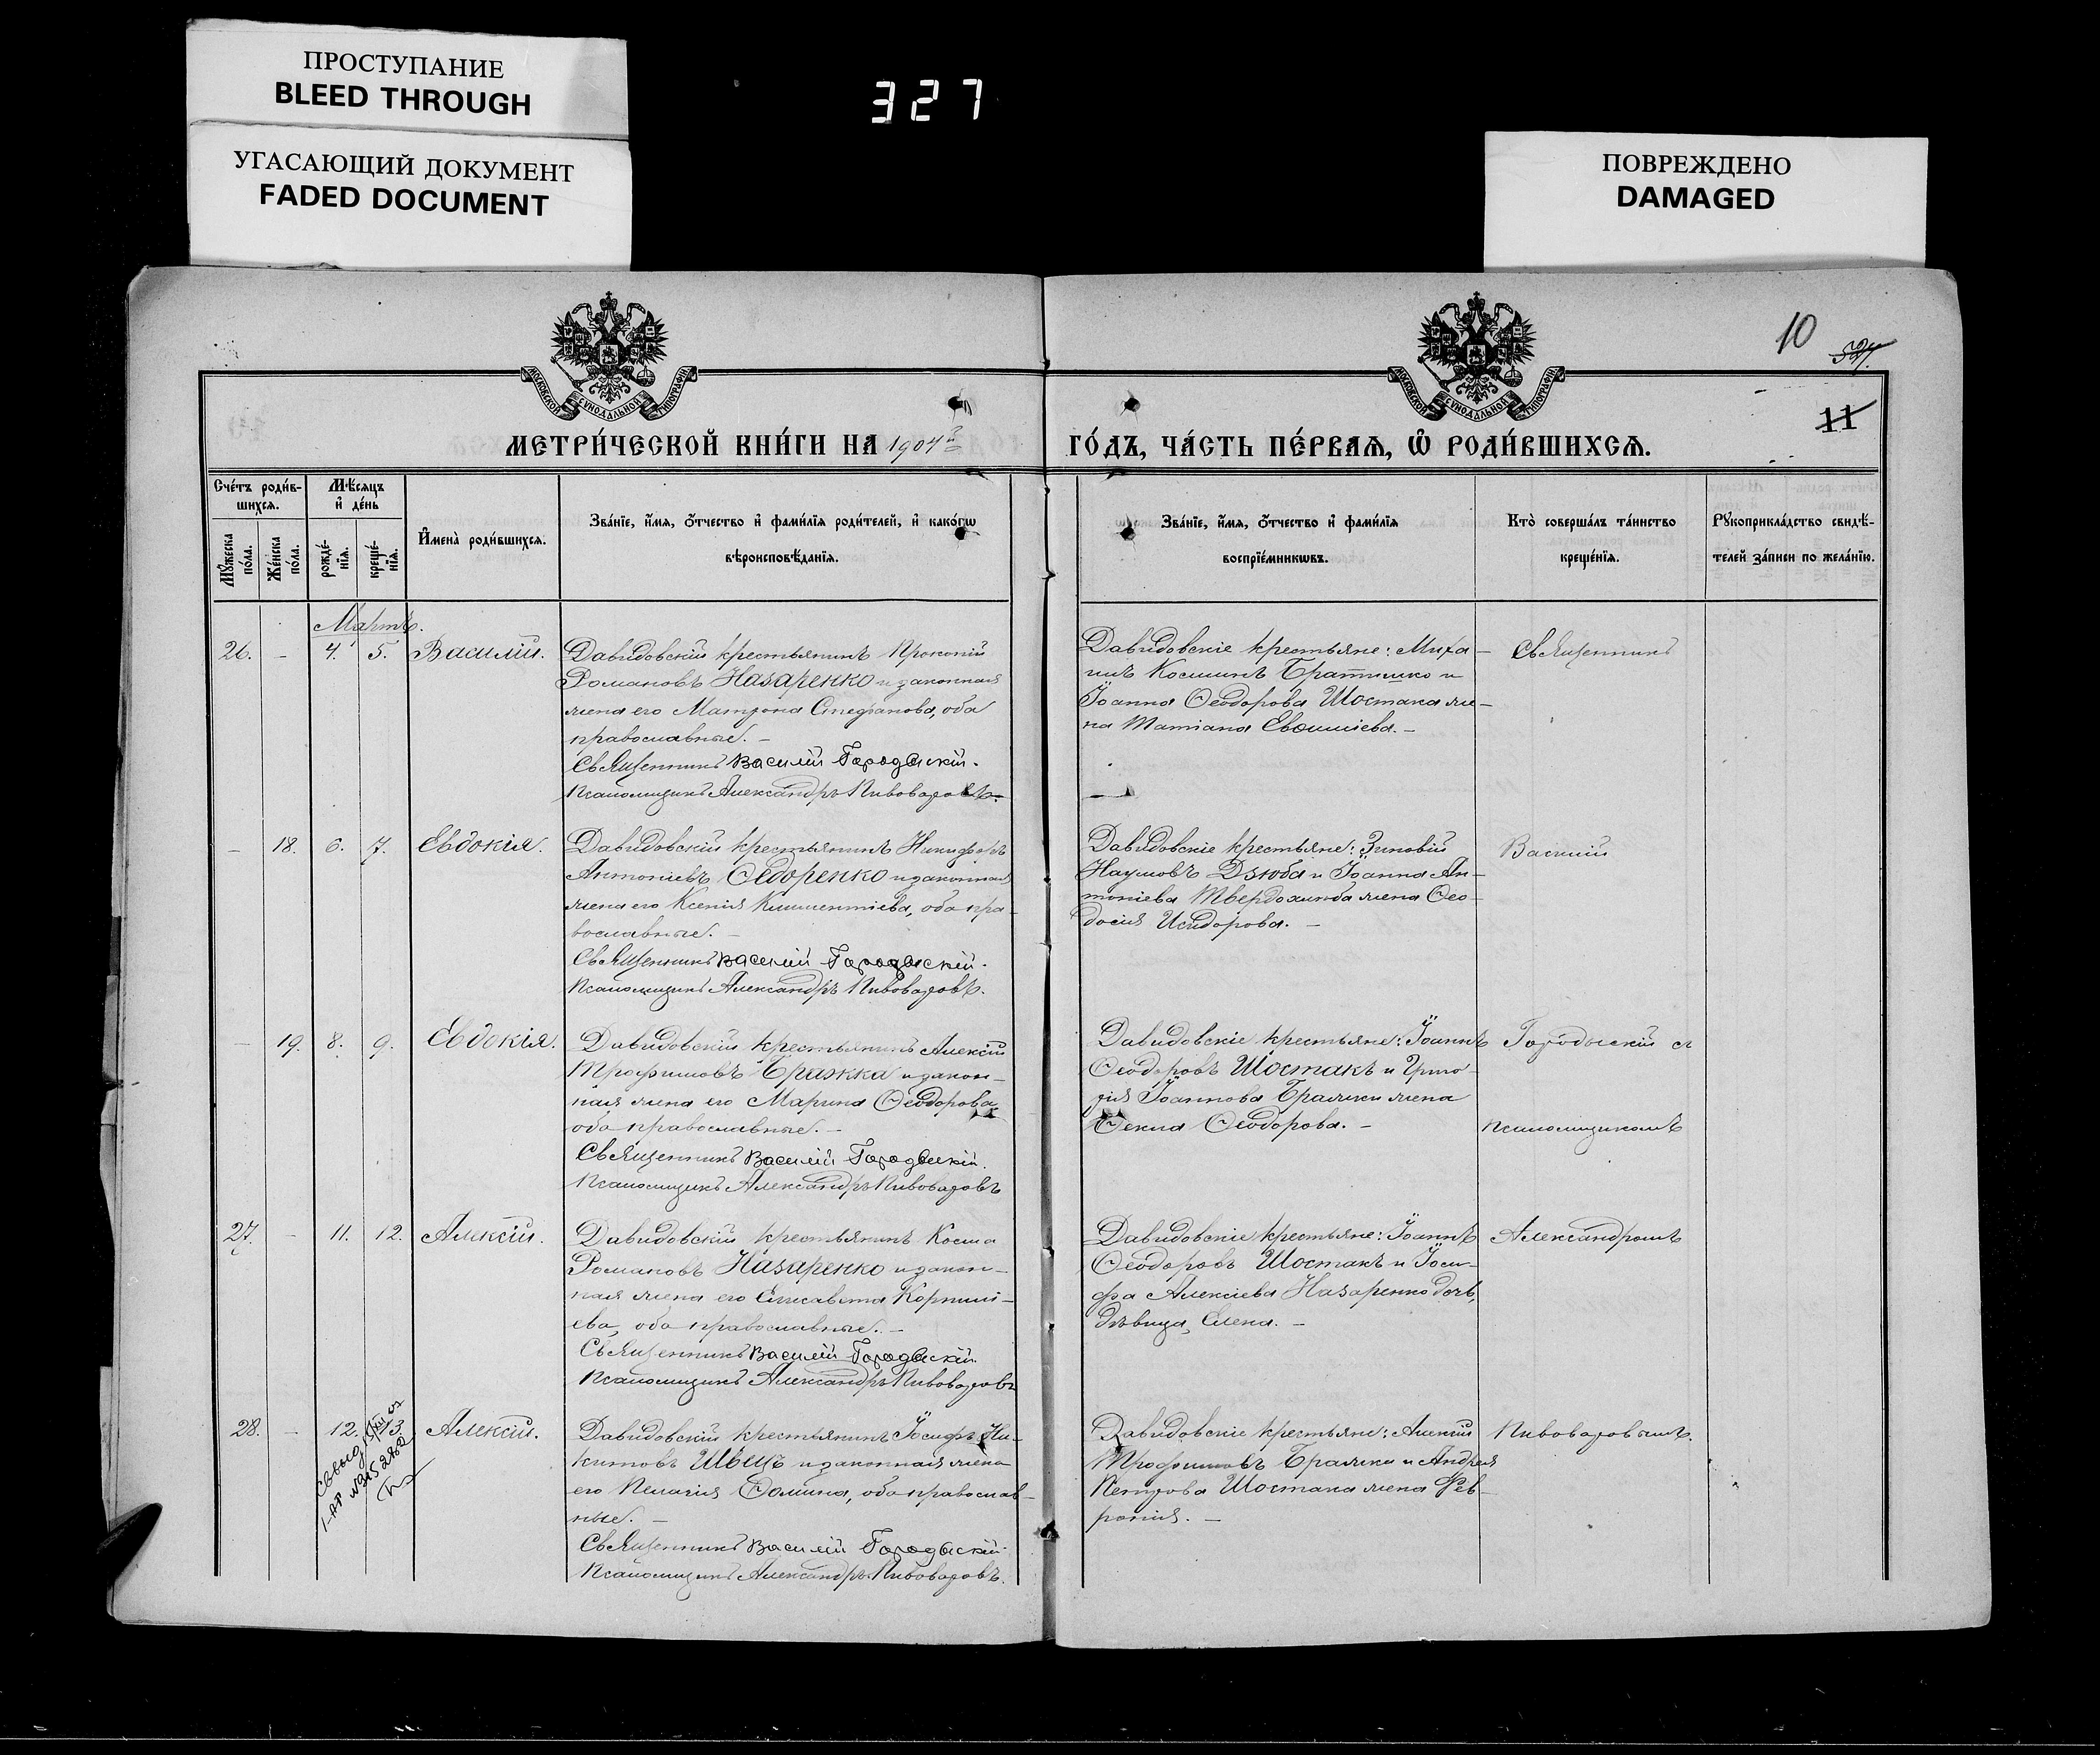 ПРОСТУПАНИЕ
BLEED THROUGH
УГАСАЮЩИЙ ДОКУМЕНТ
FADED DOCUMENT
327
ПОВРЕЖДЕНО
DAMAGED
МОСКОВСКОЙ СѴНОДАЛЬНОЙ ТИПОГРАФІИ
МОСКОВСКОЙ СѴНОДАЛЬНОЙ ТИПОГРАФІИ
10
11
МЕТРИ́ЧЕСКОЙ КНИ́ГИ НА 1904й
ГО́ДЪ, ЧА́СТЬ ПЕ́РВАѦ, Ѡ҆ РОДИ́ВШИХСѦ.
Сче́тъ роди́в-
шихсѧ.
Мꙋ́жеска по́ла.
Же́нска по́ла.
Мѣ́сѧцъ
и҆ де́нь
рожде́-
нїѧ.
креще́-
нїѧ.
И҆мена̀ роди́вшихсѧ.
Зва́нїе, и҆́мѧ, о҆́тчество и҆ фами́лїѧ роди́телей, и҆ како́гѡ
вѣроисповѣ́данїѧ.
Зва́нїе, и҆́мѧ, о҆́тчество и҆ фами́лїѧ
воспрїе́мникѡвъ.
Кто̀ соверша́лъ та́инство
креще́нїѧ.
Рꙋкоприкла́дство свидѣ́-
телей за́писи по жела́нїю.
Мартъ.
26. – 4. 5. Василій.
Давидовскій крестьянинъ Прокопій
Романовъ Назаренко и законная
жена его Матрона Стефанова, оба
православные. –
Священникъ Василій Городыскій.
Псаломщикъ Александръ Пивоваровъ.
Давидовскіе крестьяне: Миха-
илъ Косминъ Братишко и
Іоанна Ѳеодорова Шостака же-
на Татіана Евѳиміева. –
Священникъ
– 18. 6. 7. Евдокія.
Давидовскій крестьянинъ Никифоръ
Антоніевъ Ѳедоренко и законная
жена его Ксенія Климентіева, оба пра-
вославные. –
Священникъ Василій Городыскій.
Псаломщикъ Александръ Пивоваровъ.
Давидовскіе крестьяне: Зиновій
Наумовъ Дзюба и Іоанна Ан-
тоніева Твердохлиба жена Ѳео-
досія Исидорова. –
Василій
– 19. 8. 9. Евдокія.
Давидовскій крестьянинъ Алексій
Трофимовъ Бражка и закон-
ная жена его Марина Ѳеодорова
оба православные. –
Священникъ Василій Городыскій.
Псаломщикъ Александръ Пивоваровъ
Давидовскіе крестьяне: Іоаннъ
Ѳеодоровъ Шостакъ и Григо-
рія Іоаннова Бражки жена
Ѳекла Ѳеодорова. –
Городыскій съ
псаломщикомъ
27. – 11. 12. Алексій.
Давидовскій крестьянинъ Косма
Романовъ Назаренко и закон-
ная жена его Елисавета Корнилі-
ева, оба православные. –
Священникъ Василій Городыскій.
Псаломщикъ Александръ Пивоваровъ
Давидовскіе крестьяне: Іоаннъ
Ѳеодоровъ Шостакъ и Іоси-
фа Алексіева Назаренко дочь,
дѣвица, Елена. –
Александромъ
28. – 12. 13. Алексій.
Давидовскій крестьянинъ Іосифъ Ни-
китовъ Швецъ и законная жена
его Пелагія Ѳомина, оба православ-
ные. –
Священникъ Василій Городыскій.
Псаломщикъ Александръ Пивоваровъ.
Давидовскіе крестьяне: Алексій
Трофимовъ Бражки и Андрея
Петрова Шостака жена Фев-
ронія. –
Пивоваровымъ.